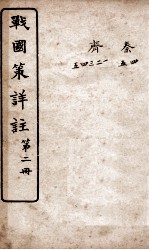 戰國策詳註
第二冊
秦
四五
齊
一二三四五